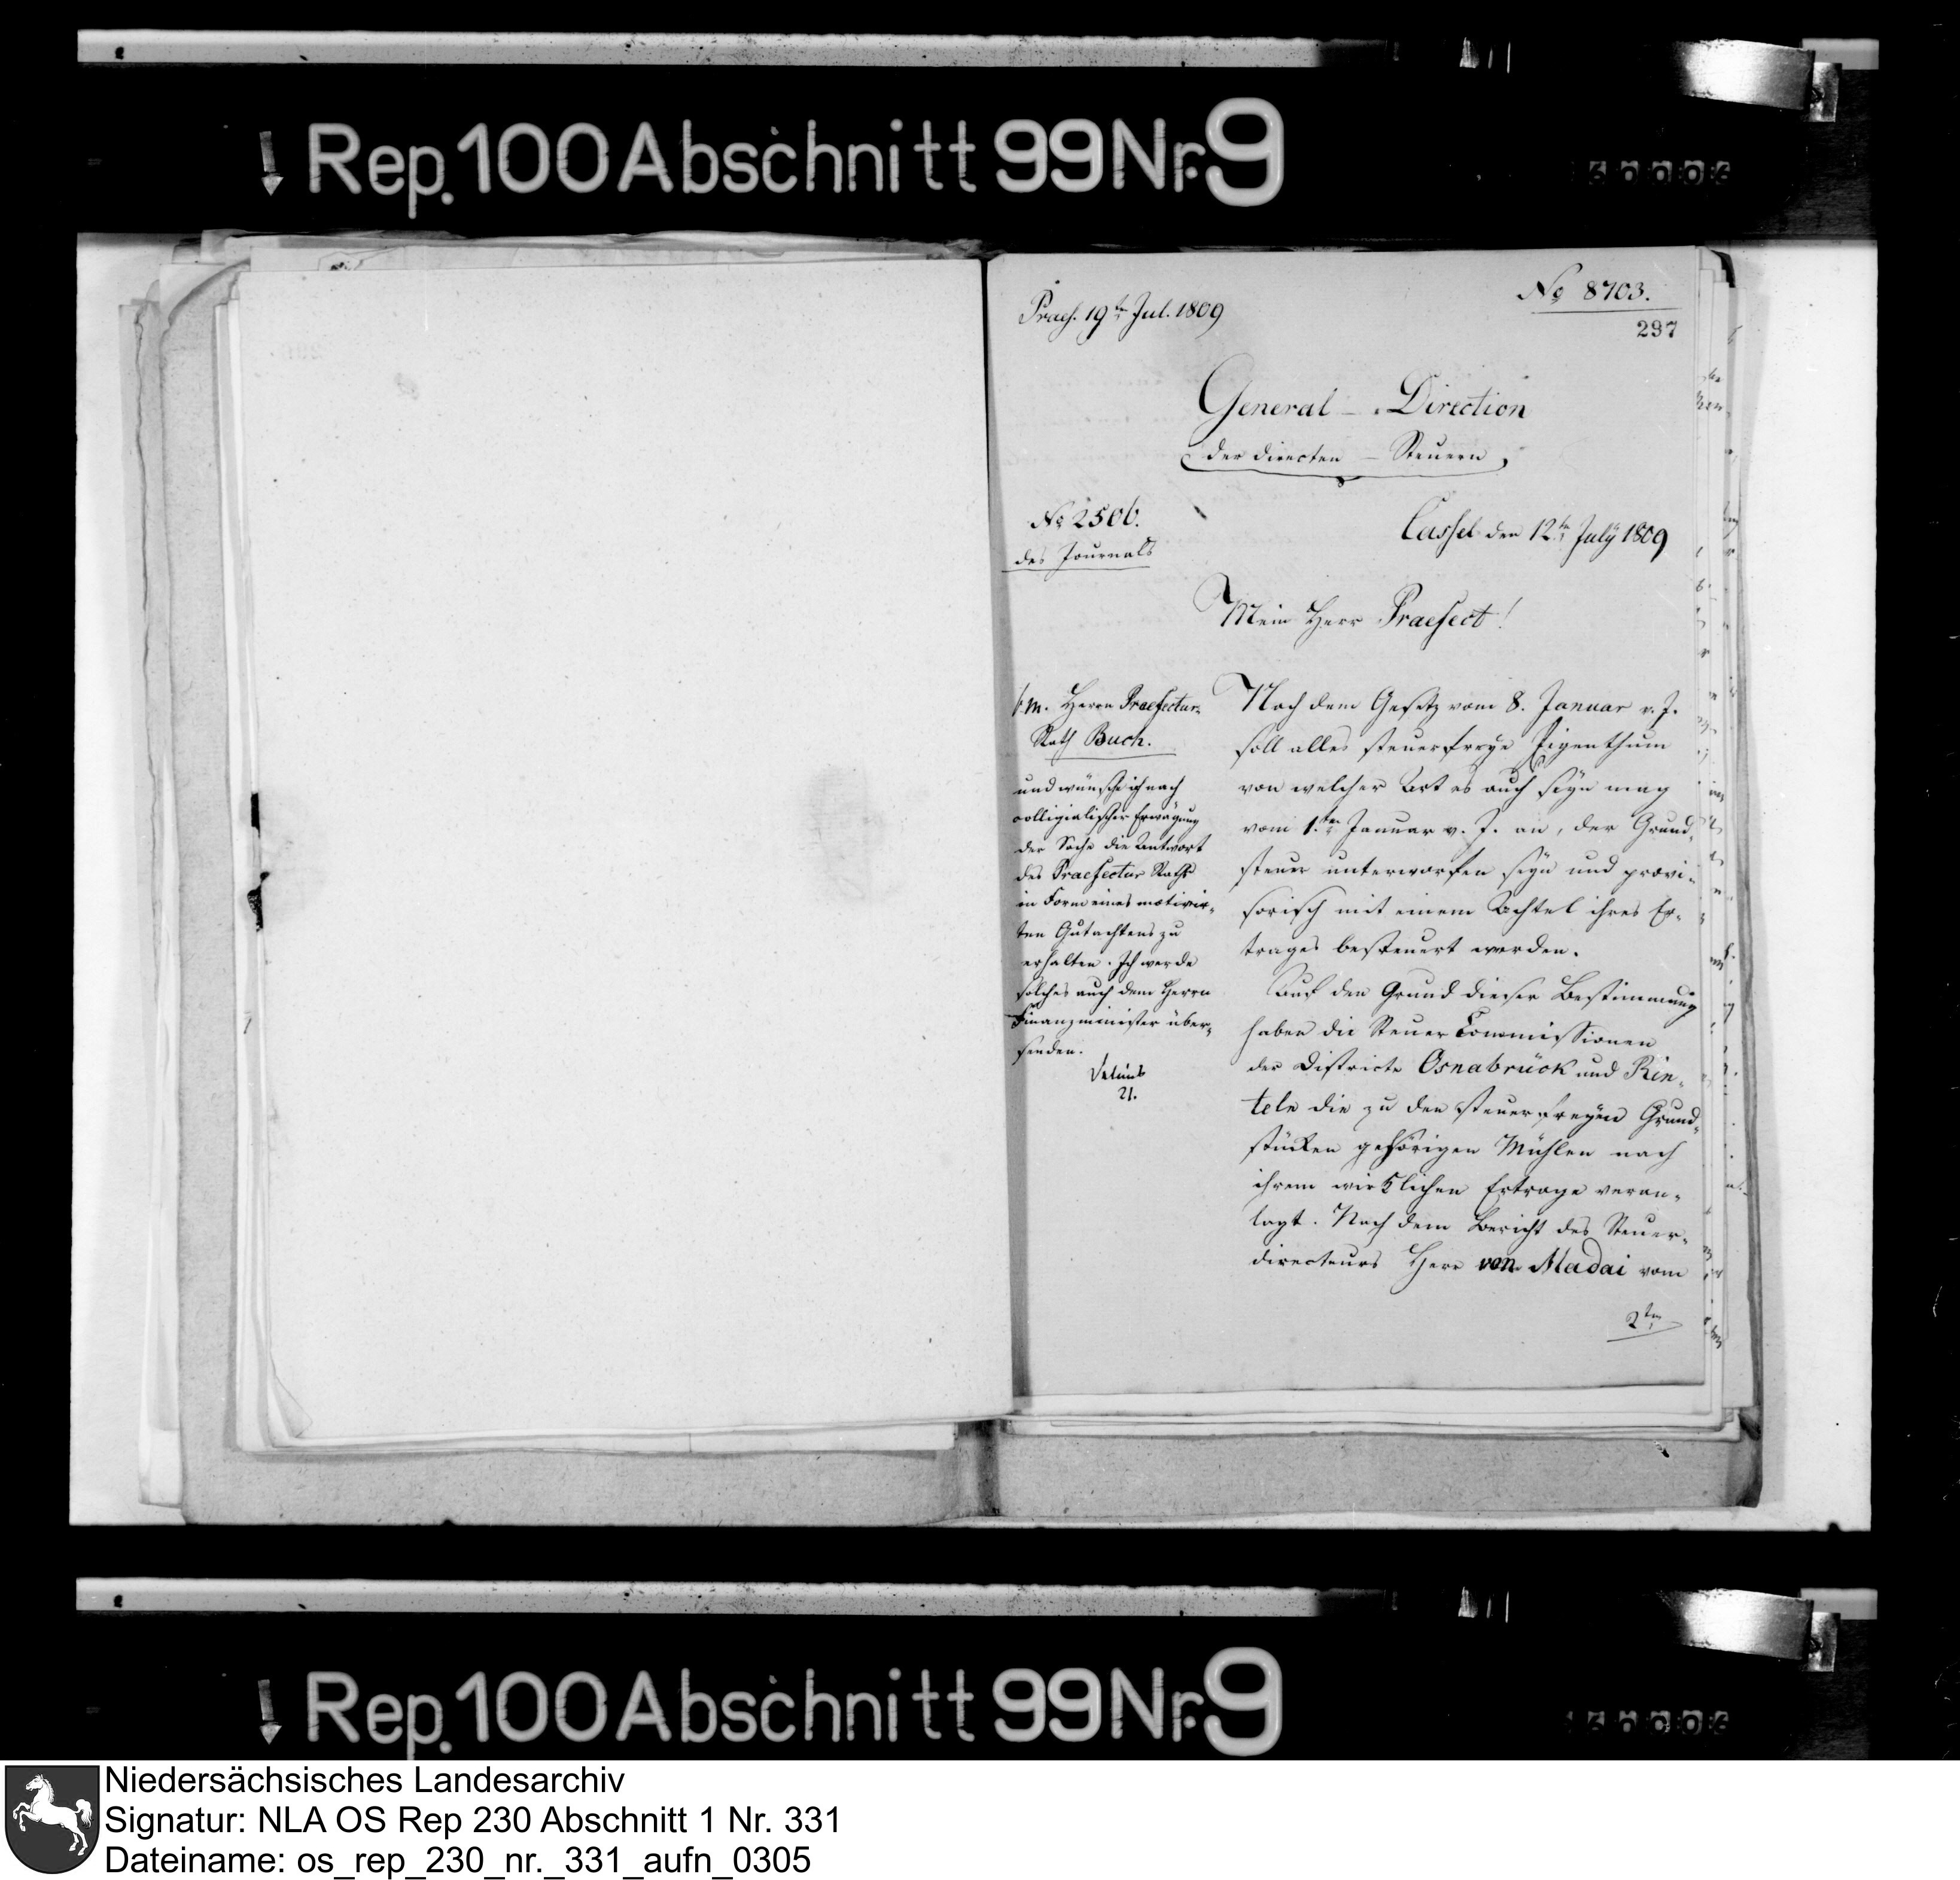 Rep. 100 Abschnitt 99 Nr. 9
Praes. 19ten Jul. 1809
No 8703.
297
General - Direction
der directen - Steuern,
No 2506.
des Journals
Cassel den 12ten July 1809
Mein Herr Praefect!
Herrn Praefectur-
Rath Buch.
und wünsche ich nach
collegialischer Erwägung
der Sache die Antwort
des Praefectur Raths
in Form eines motivir-
ten Gutachtens zu
erhalten. Ich werde
solches auch dem Herrn
Finanzminister über-
senden.
21.
Nach dem Gesetz vom 8. Januar v. J.
soll alles steuerfreye Eigenthum
von welcher Art es auch seyn mag
vom 1ten Januar v. J. an, der Grund-
steuer unterworfen seyn und provi-
sorisch mit einem Achtel ihres Er-
trages besteuert werden.
Auf den Grund dieser Bestimmung
haben die Steuer Commissionen
der Districte Osnabrück und Rin-
teln die zu den steuerfreyen Grund-
stücken gehörigen Mühlen nach
ihrem wirklichen Ertrage veran-
lagt. Nach dem Bericht des Steuer-
directeurs Herr von Madai vom
2ten
Rep. 100 Abschnitt 99 Nr. 9
Niedersächsisches Landesarchiv
Signatur: NLA OS Rep 230 Abschnitt 1 Nr. 331
Dateiname: os_rep_230_nr._331_aufn_0305